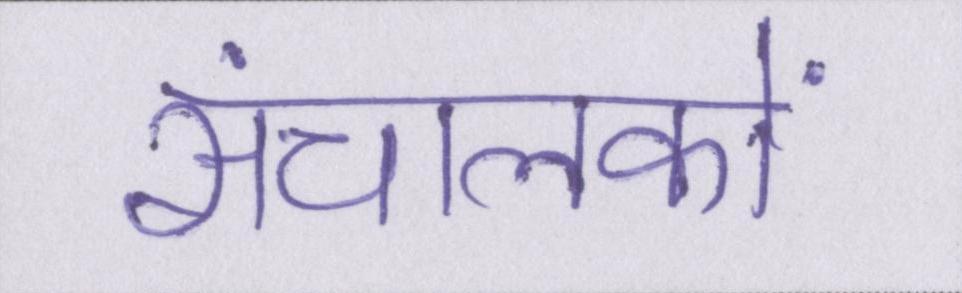 संचालकों